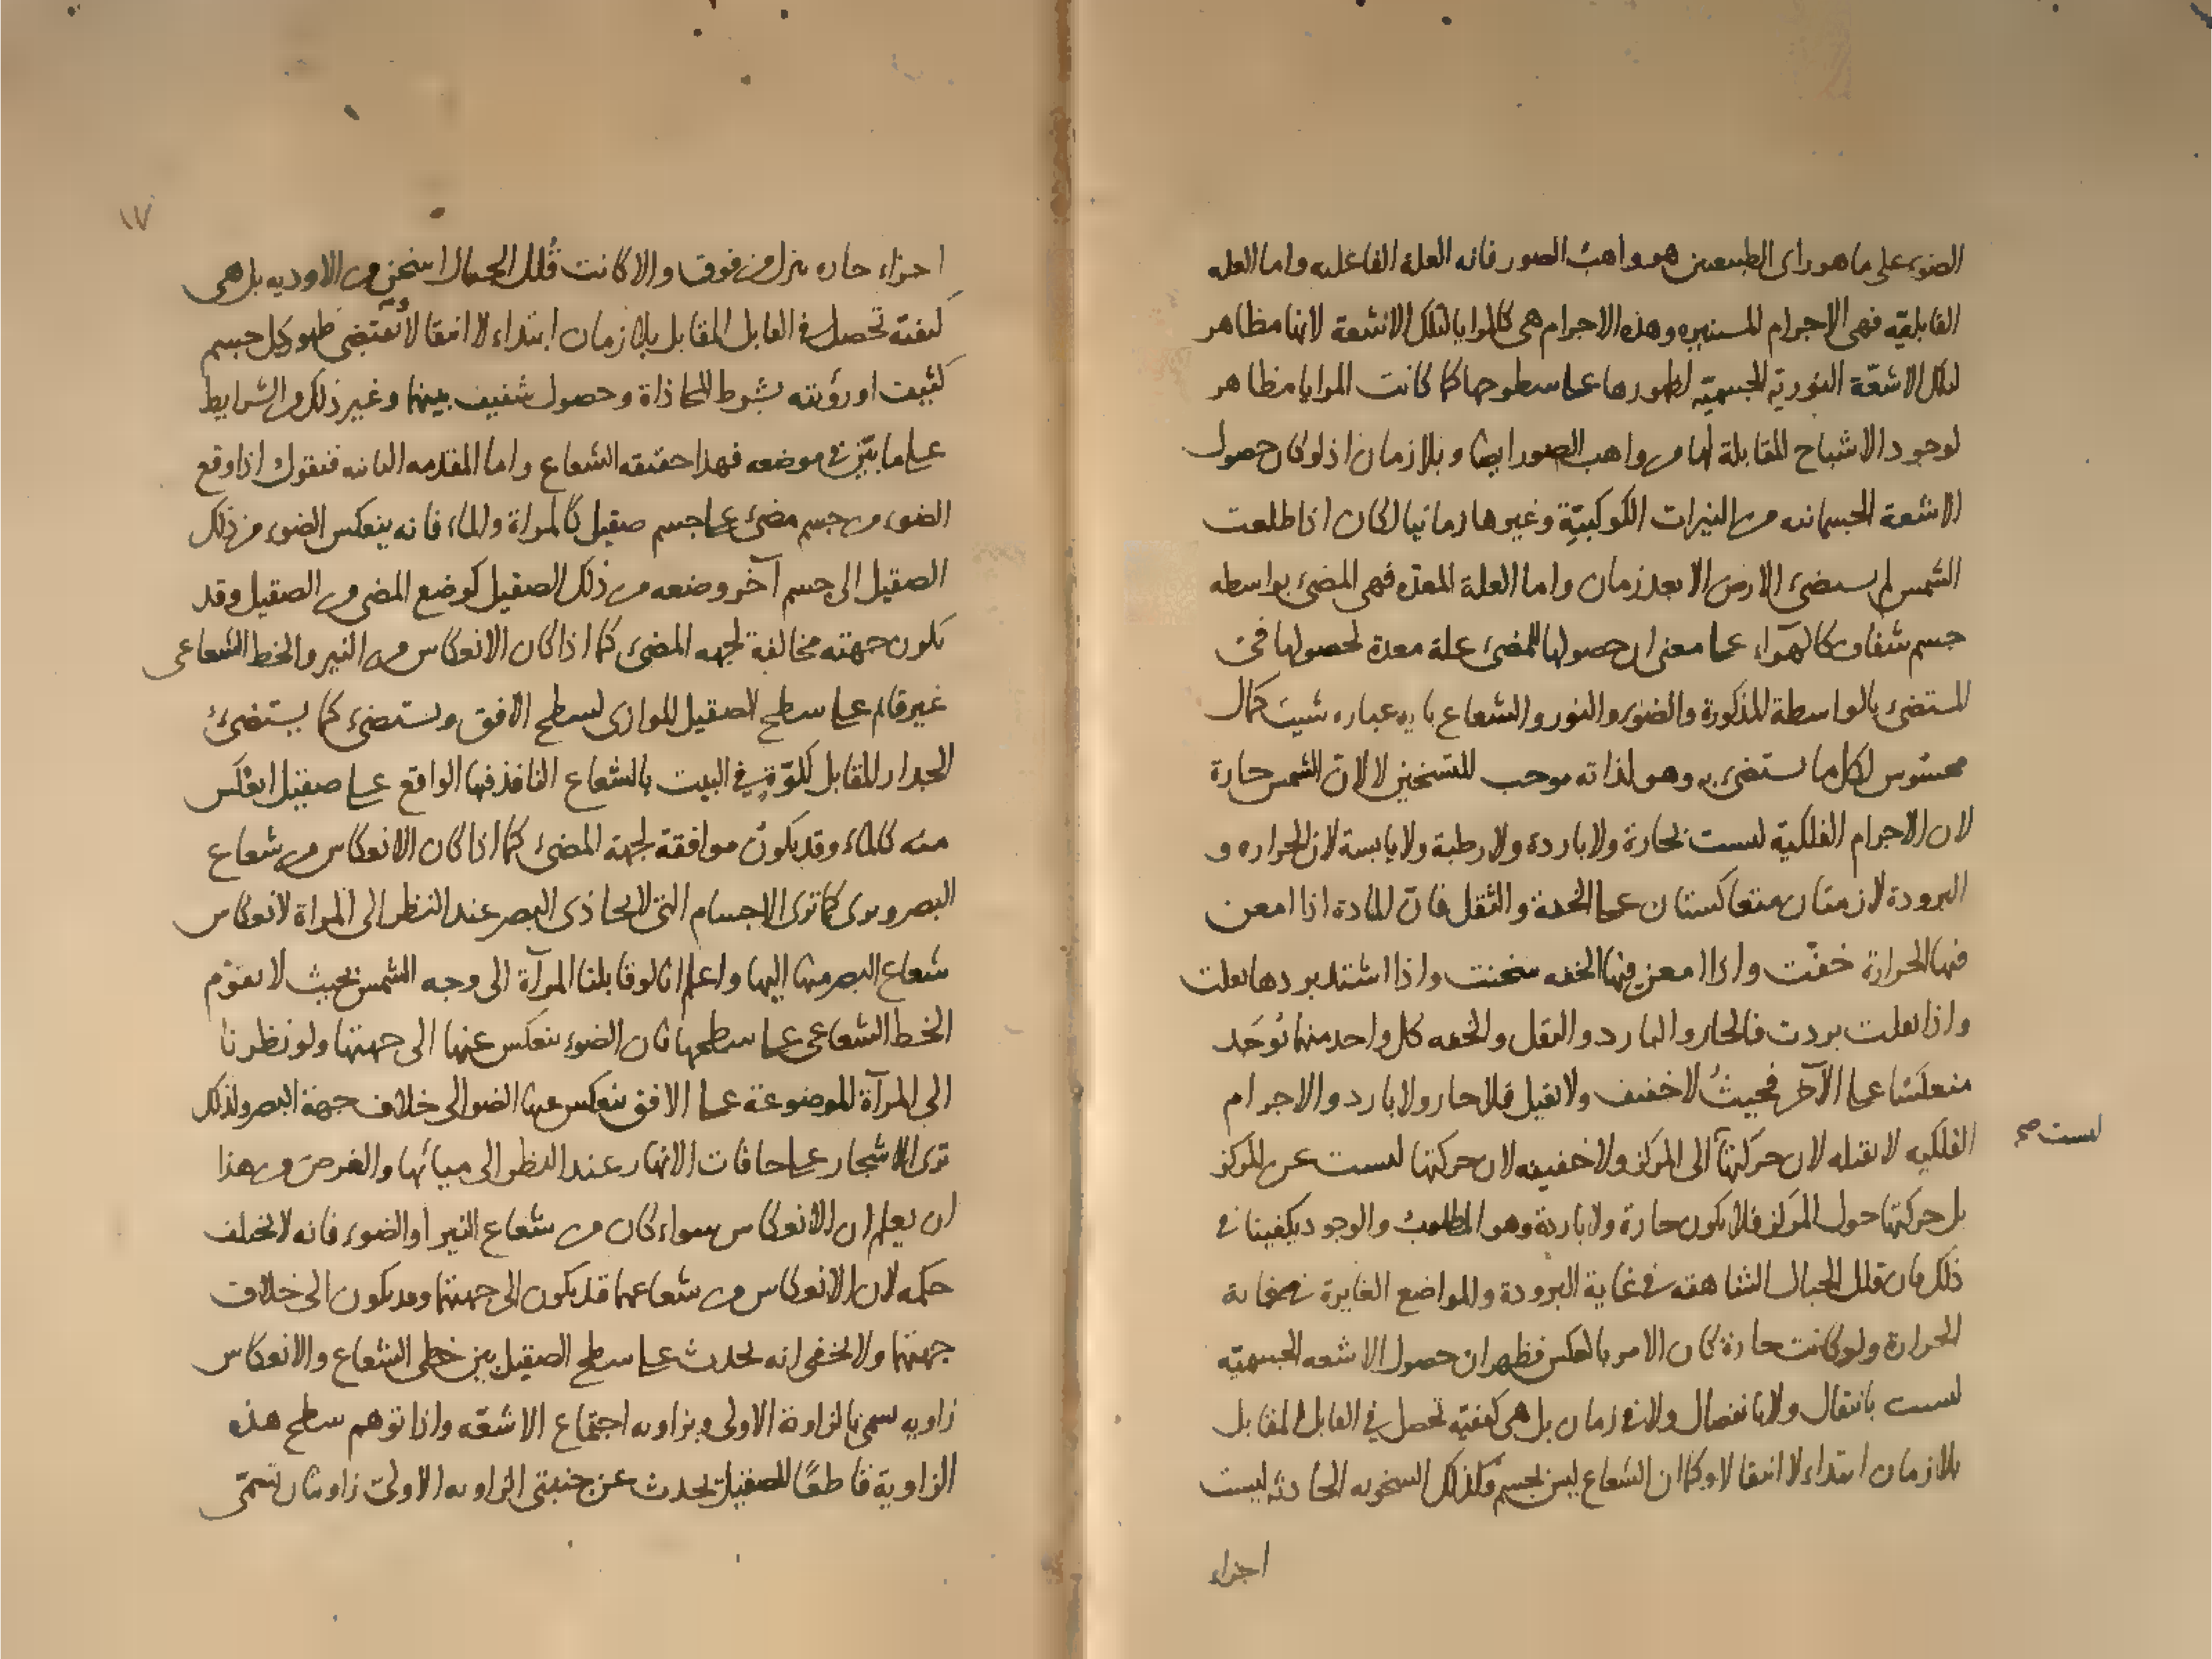 الضوء على ما هو راى الطبيعيين هو واهب الصور فانه العلة الفاعليه واما العله
القابليّه فهى الاجرام المستنيره وهذه الاجرام هى كالمرايا لتلك الاشعة لانها مظاهر
لتلك الاشعّة النورية الجسميّه لظهورها على سطوحها كما كانت المرايا مظاهر
لوجود الاشباح المقابلة لها من واهب الصور ايضا وبلا زمان اذ لو كان حصول
الاشعة الجسمانيه من النيرات الكوكبيّةِ وغيرها زمانيا لكان اذا طلعت
الشمس لم يستضئ الارض الا بعد زمان واما العلة المعدّه فهى المضئ بواسطه
جسم شفاف كالهوآء على معنى ان حصولها للمضئ علة معدة لحصولها فى
المستضئ بالواسطة المذكورة والضوء والنور والشعاع باى عباره شيت كمال
محسوس لكل ما يستضئ به وهو لذاته موجب للتسخين لا لانّ الشمس حارة
لان الاجرام الفلكية ليست بحارة ولا باردة ولا رطبة ولا يابسة لان الحراره و
البرودة لازمتان متعاكستان على الخفة والثقل فانّ المادة اذا امعن
فيها الحرارة خفّت واذا امعن فيها الخفه سخنت واذا اشتد بردها ثقلت
واذا ثقلت بردت فالحار والبارد والثقل والخفه كل واحد منهما يُوجَد
منعكسًا على الآخر فحيثُ لا خفيف ولا ثقيل فلا حار ولا بارد والاجرام
الفلكيه لا ثقيله لان حركتها الى المركز ولا خفيفه لان حركتها ليست عن المركز
ليست صح
بل حركتها حول المركز فلا يكون حارة ولا باردة وهو المطلوب والوجود يكفينا فى
ذلك فان قلل الجبال الشاهقه فى غاية البرودة والمواضع الغايرة فى غاية
الحرارة ولو كانت حارة كان الامر بالعكس فظهر ان حصول الاشعه الجسميّه
ليست بانتقال ولا بانفصال ولا فى زمان بل هى كيفيّه تحصل فى القابل المقابل
بلا زمان ابتداء لا انتقالا وكما ان الشعاع ليس بجسم فكذلك السخونه الحادثه ليست
اجزاء
١٧
اجزاء حاره ينزل من فوق والا كانت قُلل الجبال اسخن من الاوديه بل هى
كيفيّة تحصل فى القابل المقابل بلا زمان ابتداء لا انتقالا يقتضى ظهور كل جسم
كثيف او رؤيته بشرط المحاذاة وحصول شفيف بينهما وغير ذلك من الشرايط
على ما بيّن فى موضعه فهذا حقيقه الشعاع واما المقدمه الثانيه فنقول اذا وقع
الضوء من جسم مضئ على جسم صقيل كالمراة والماء فانه ينعكس الضوء من ذلك
الصقيل الى جسم آخر وضعه من ذلك الصقيل كوضع المضى من الصقيل وقد
يكون جهته مخالفة لجهه المضئ كما اذا كان الانعكاس من النير والخط الشعاعى
غير قايم على سطح الصقيل الموازى لسطح الافق ويستضئ كما يستضئ
الجدار المقابل للكوّة فى البيت بالشعاع النافذ فيها الواقع على صقيل انعكس
منه كالماء وقد يكون موافقة لجهة المضئ كما اذا كان الانعكاس من شعاع
البصر ويرى كما ترى الاجسام التى لا يحاذى البصر عند النظر الى المراة لانعكاس
شعاع البصر منها اليها واعلم انا لو قابلنا المرآة الى وجه الشمس بحيث لا يقوّم
الخط الشعاعى على سطحها فان الضوء ينعكس عنها الى جهتها ولو نظرنا
الى المرآة الموضوعة على الافق ينعكس عنها الضو الى خلاف جهة البصر ولذلك
ترى الاشجار على حافات الانهار عند النظر الى مياهها والغرض من هذا
ان يعلم ان الانعكاس سواء كان من شعاع النير او الضوء فانه لا يختلف
حكمه لان الانعكاس من شعاعهما قد يكون الى جهتهما وقد يكون الى خلاف
جهتهما ولا يخفى انه يحدث على سطح الصقيل بين خطى الشعاع والانعكاس
زاويه سمى بالزاوية الاولى وبزاويه اجتماع الاشعّه واذا توهم سطح هذه
الزاوية قاطعًا للصقيل يحدث عن جنبتى الزاويه الاولى زاويتان تسمّى